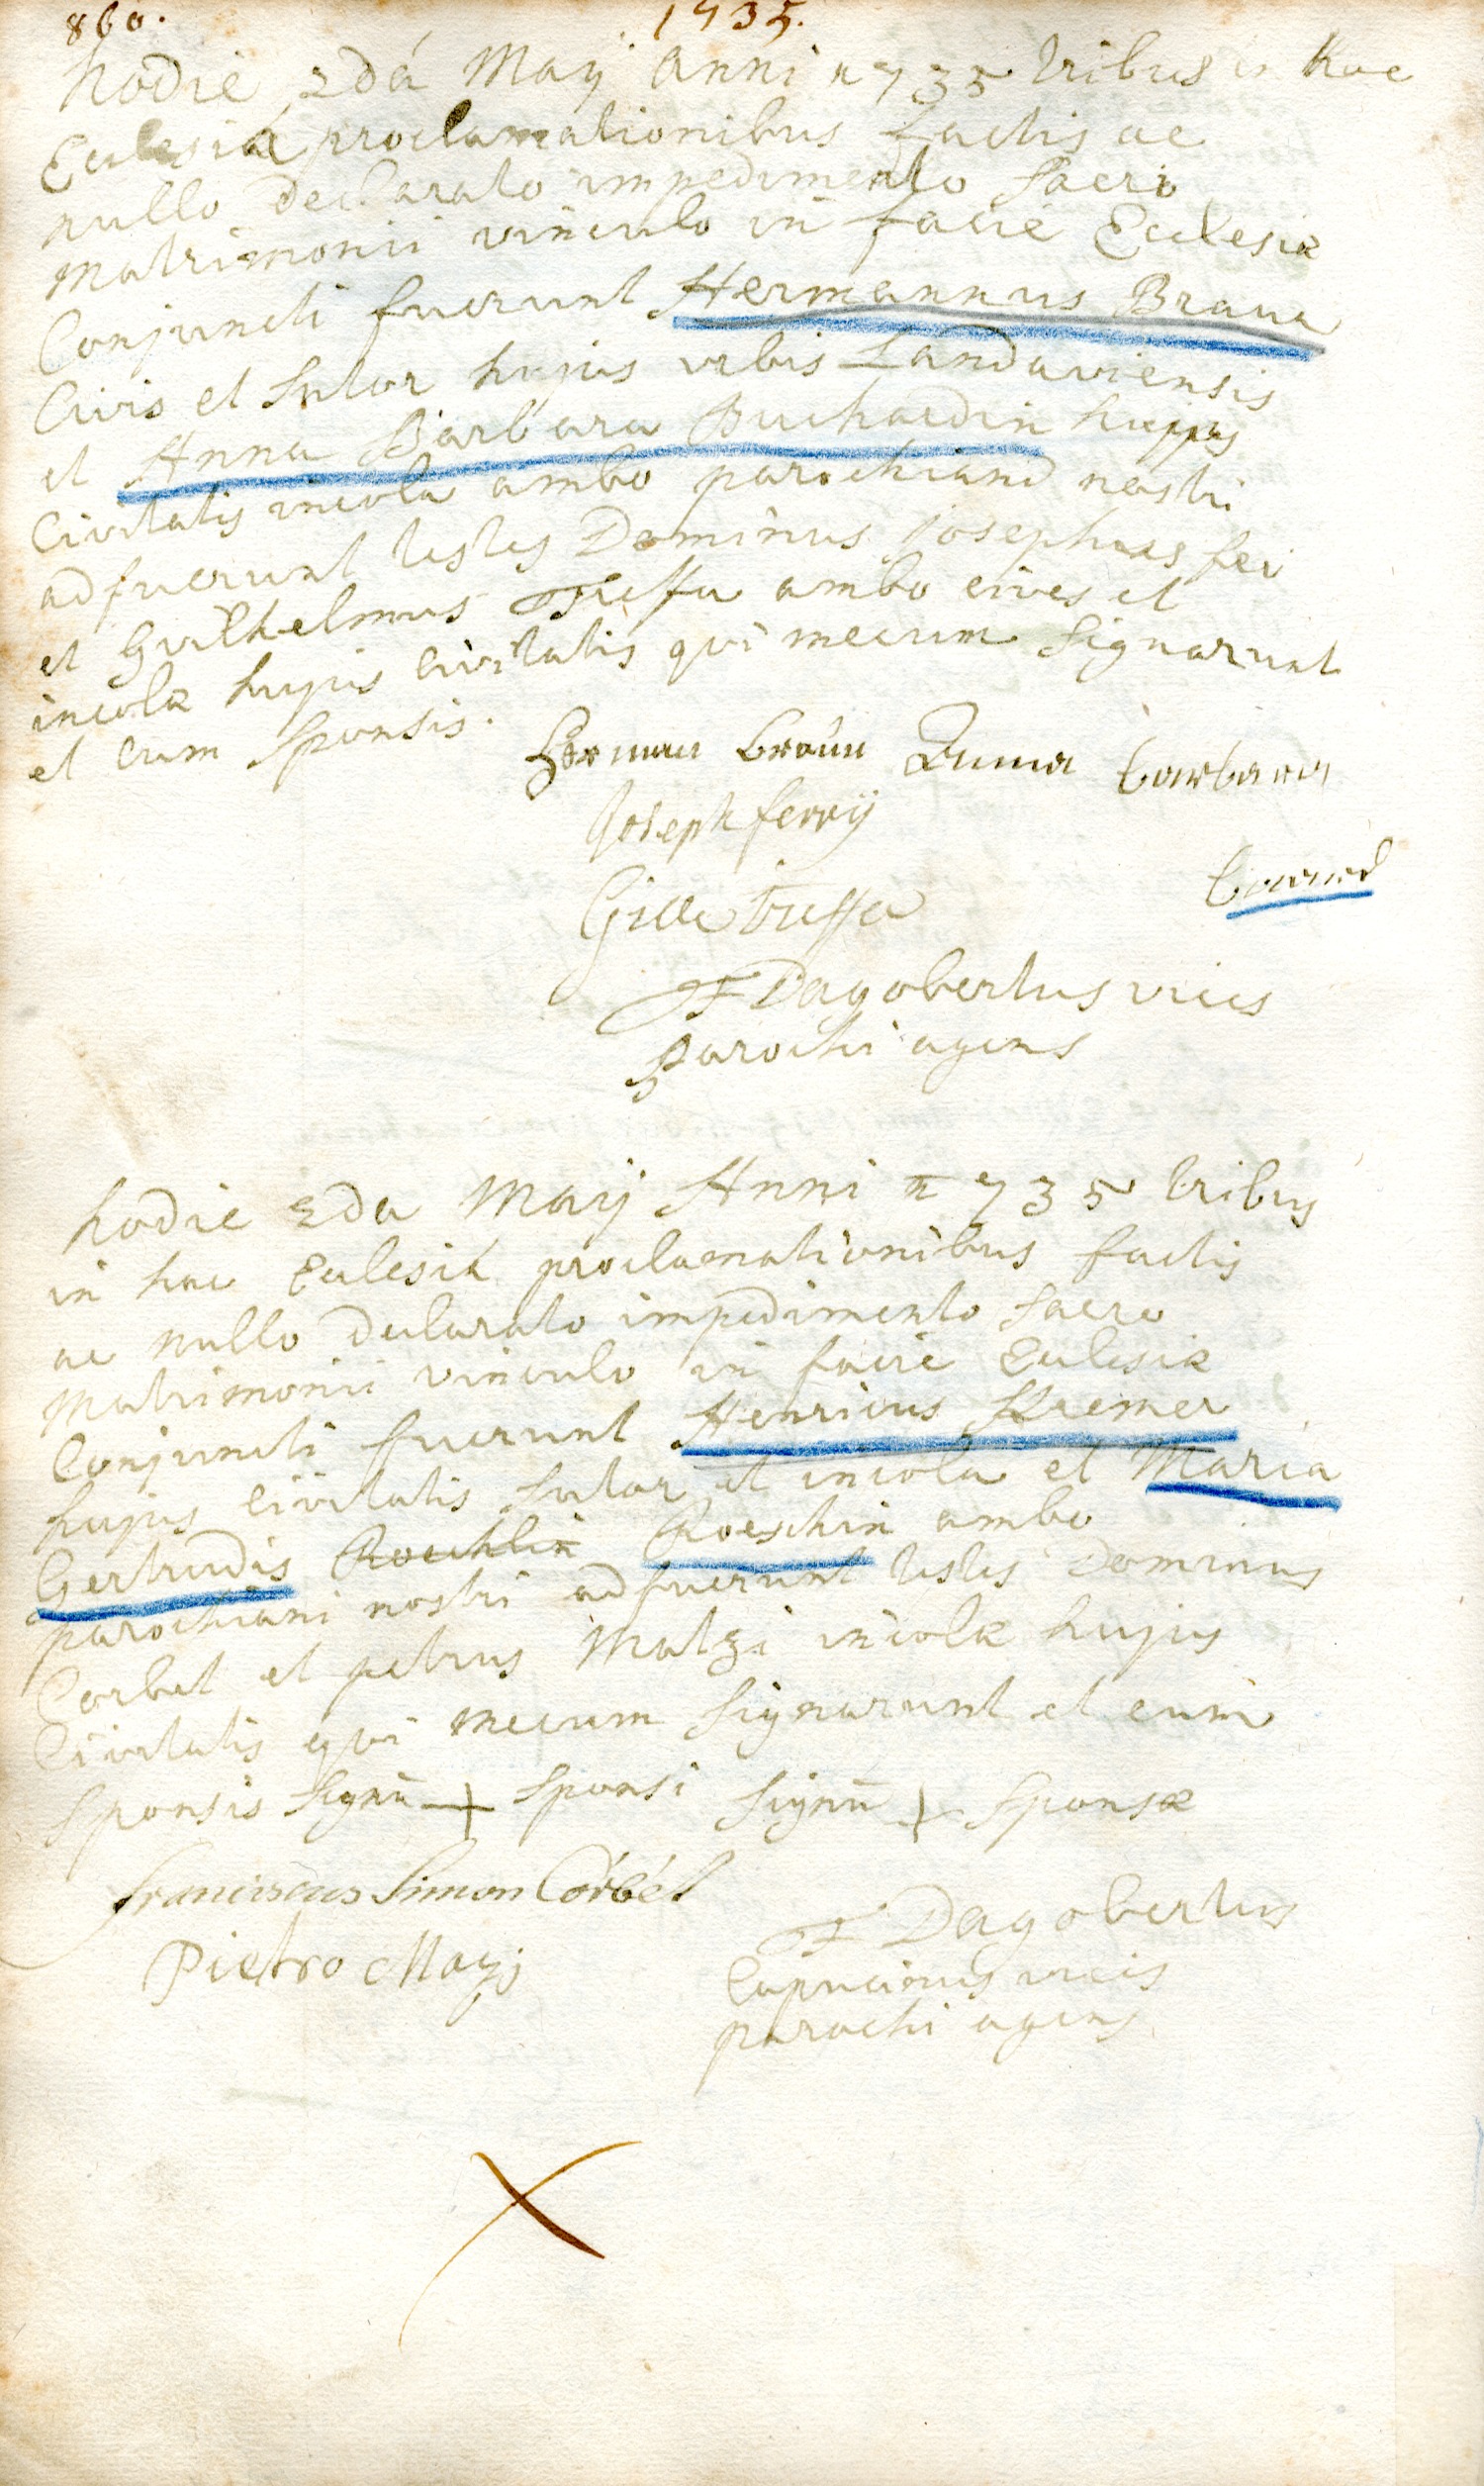 860. 1735.
hodie 2da Maij Anni 1735 tribus in hac
Ecclesiâ proclamationibus factis ac
nullo declarato impedimento sacro
matrimonii vinculo in facie Ecclesiæ
Conjuncti fuerunt Hermannus Braun
Civis et sutor hujus urbis Landaviensis
et Anna Barbara Buchardin hujus
Civitatis incola ambo parochiani nostri
adfuerunt testes Dominus josephus feri
et Guilhelmus Treffa ambo cives et
incolæ hujus civitatis qui mecum signarunt
et cum sponsis.
Herman Braun Anna barbara
Joseph ferrij
Gille treffa
F Dagobertus vices
parochi agens
hodie 2da Maij Anni 1735 tribus
in hac Eclesiâ proclamationibus factis
ac nullo declarato impedimento sacro
Matrimonii vinculo in facie Eclesiæ
Conjuncti fuerunt Henricus Kremer
hujus civitatis sutor et incola et Maria
Gertrudis Roeschin ambo
parochiani nostri adfuerunt testes Dominus
Corbet et petrus Matzi incolæ hujus
Civitatis qui mecum signarunt et cum
sponsis signū + sponsi signū + sponsæ
franciscus Simon Corbet
Pietro Mazj
F Dagobertus
Capucinus vices
parochi agens